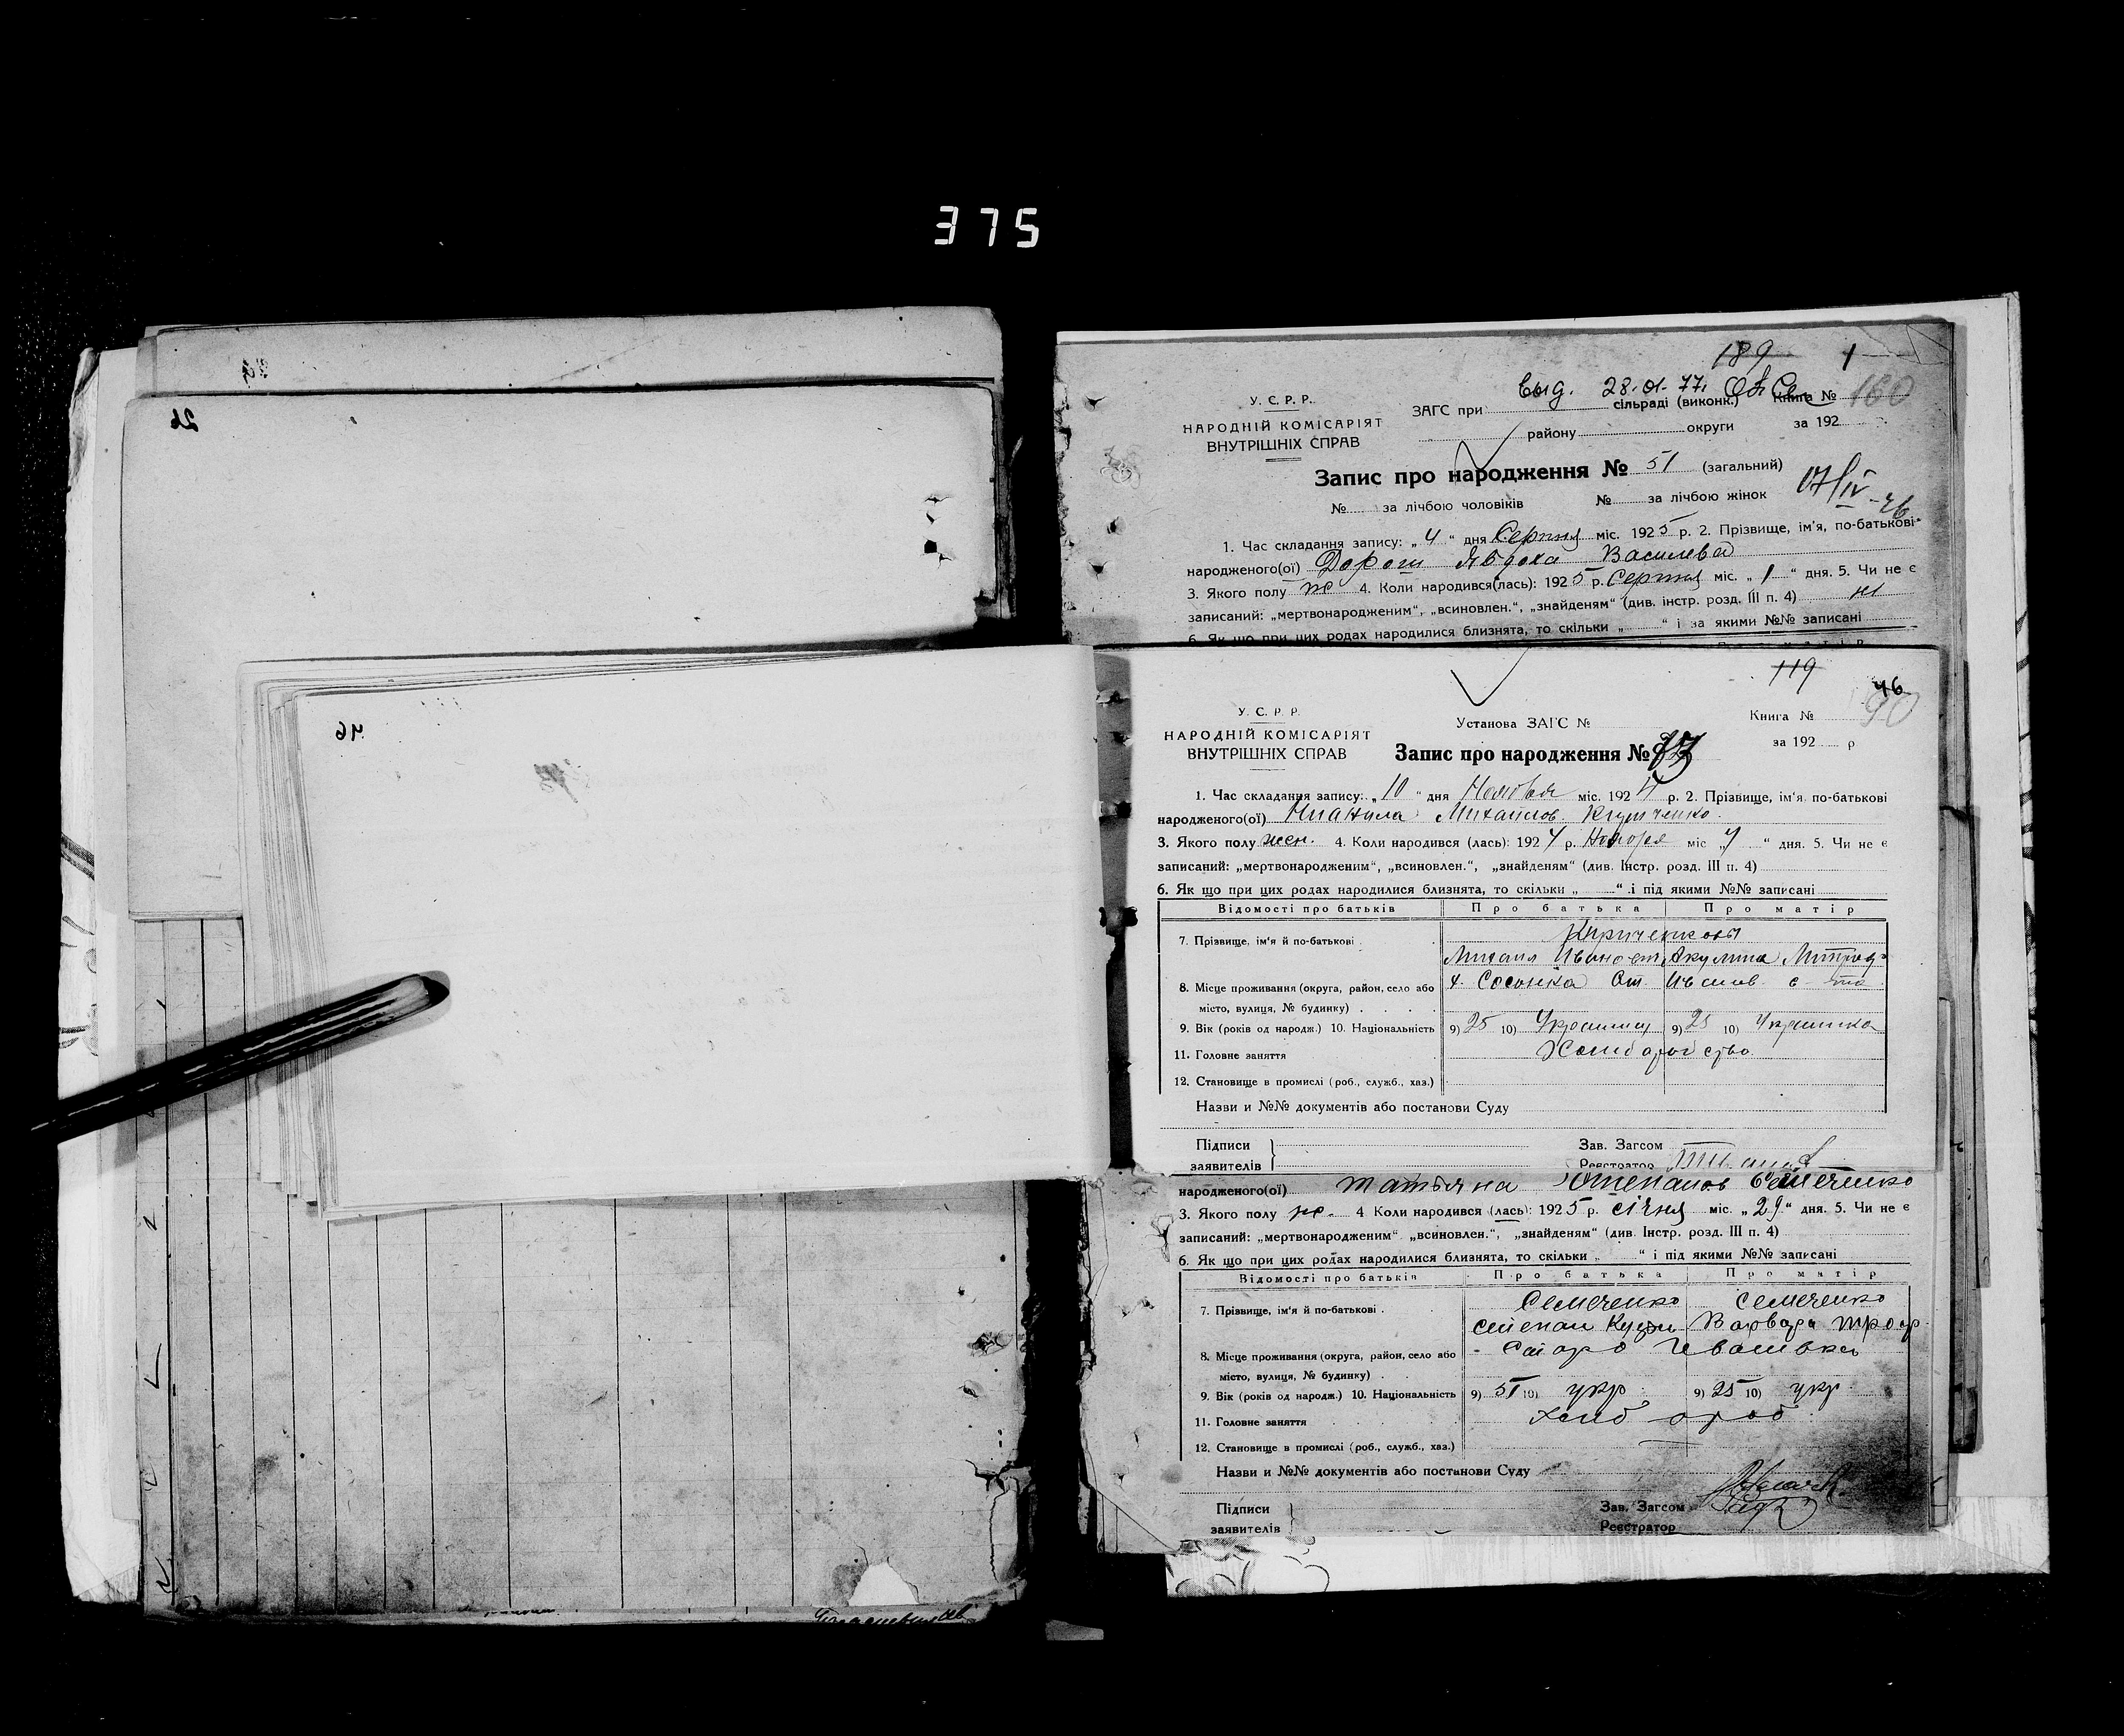 375
26
46
189 1
выд. 28.01.77.
У. С. Р. Р. ЗАГС при сільраді (виконк.) Книга № 160
НАРОДНІЙ КОМІСАРІЯТ району округи за 192
ВНУТРІШНІХ СПРАВ
Запис про народження № 51 (загальний)
№ за лічбою чоловіків № за лічбою жінок 17/IV-26
1. Час складання запису: „4“ дня Серпня міс. 1925 р. 2. Прізвище, ім'я, по-батькові
народженого(ої) Явдоха Василева
3. Якого полу ж 4. Коли народився(лась): 1925 р. Серпня міс. „1“ дня. 5. Чи не є
записаний: „мертвонародженим“, „всиновлен.“, „знайденям“ (див. інстр. розд. III п. 4) ні
6. Як що при цих родах народилися близнята, то скільки „ “ і за якими №№ записані
119
46
У. С. Р. Р. Установа ЗАГС № Книга № 90
НАРОДНІЙ КОМІСАРІЯТ за 192 р
ВНУТРІШНІХ СПРАВ Запис про народження №
1. Час складання запису: „10“ дня Ноября міс. 1924 р. 2. Прізвище, ім'я, по-батькові
народженого(ої) Михайлов
3. Якого полу жен. 4. Коли народився (лась): 1924 р. Ноября міс „4“ дня. 5. Чи не є
записаний: „мертвонародженим“, „всиновлен.“, „знайденям“ (див. Інстр. розд. III п. 4)
6. Як що при цих родах народилися близнята, то скільки „ “ і під якими №№ записані
Відомості про батьків Про батька Про матір
7. Прізвище, ім'я й по-батькові Кириченковы
Михаил Акулина
8. Місце проживання (округа, район, село або х. Сосонка
місто, вулиця, № будинку)
9. Вік (років од народж.) 10. Національність 9) 25 10) Украинец 9) 25 10) Украинка
11. Головне заняття
12. Становище в промислі (роб., служб., хаз.)
Назви и №№ документів або постанови Суду
Підписи Зав. Загсом
заявителів Реєстратор
народженого(ої) Татьяна Степанов Семеченко
3. Якого полу ж. 4 Коли народився (лась): 1925 р. січня міс. „29“ дня. 5. Чи не є
записаний: „мертвонародженим“ „всиновлен.“, „знайденям“ (див. Інстр. розд. III п. 4)
6. Як що при цих родах народилися близнята, то скільки „ “ і під якими №№ записані
Відомості про батьків Про батька Про матір
7. Прізвище, ім'я й по-батькові Семеченко Семеченко
Степан Кузм Варвара
8. Місце проживання (округа, район, село або Старо Ивановка
місто, вулиця, № будинку)
9. Вік (років од народж.) 10. Національність 9) 51 10) укр. 9) 25 10) укр.
11. Головне заняття хліб ороб
12. Становище в промислі (роб., служб., хаз.)
Назви и №№ документів або постанови Суду
Підписи Зав. Загсом
заявителів Реєстратор